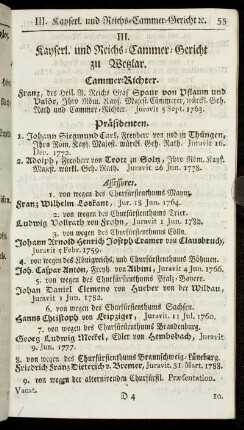 III. Kayserl. und Reichs-Cammer-Gericht ꝛc. 55
III.
Kayserl. und Reichs-Cammer-Gericht
zu Wetzlar.
Cammer-Richter.
Franz, des Heil. R. Reichs Graf Spaur von Pflaum und
Valör, Ihro Röm. Kays. Majest. Cämmerer, würckl. Geh.
Rath und Cammer-Richter. Juravit 5 Sept. 1763.
Präsidenten.
1. Johann Siegmund Carl, Freyherr von und zu Thüngen,
Ihro Röm. Kays. Majest. würckl. Geh. Rath. Juravit 16.
Dec. 1772.
2. Adolph, Freyherr von Trott zu Solz, Ihro Röm. Kays.
Majest. würckl. Geh. Rath. Juravit 28 Jun. 1778.
Assessores.
1. von wegen des Churfürstenthums Maynz.
Franz Wilhelm Loskant, Jur. 18 Jun. 1764.
2. von wegen des Churfürstenthums Trier.
Ludwig Vollrath von Frohn, Juravit 1 Jun. 1782.
3. von wegen des Cölln.
Johann Arnold Henrich Joseph Cramer von Clausbruch,
Juravit 5 Febr. 1759.
4. von wegen des Königreichs, und Churfürstenthums Böhmen.
Joh. Caspar Anton, Freyh. von Albini, Juravit 4 Jun. 1766.
5. von wegen des Churfürstenthums Pfalz-Bayern.
Johan Daniel Clemens von Hueber von der Wildau,
Juravit 1 Jun. 1782.
6. von wegen des Churfürstenthums Sachsen.
Hanns Christoph von Leipziger, Juravit 11 Jul. 1760.
7. von wegen des Churfürstenthums Brandenburg.
Georg Ludwig Meckel, Edler von Hemsbach, Juravit
9. Jun. 1777.
8. von wegen des Churfürstenthums Braunschweig-Lüneburg.
Friedrich Franz Dieterich v. Bremer, Juravit. 31 Mart. 1788.
9. von wegen der alternirenden Churfürstl. Præsentation.
Vacat.
D 4 10.